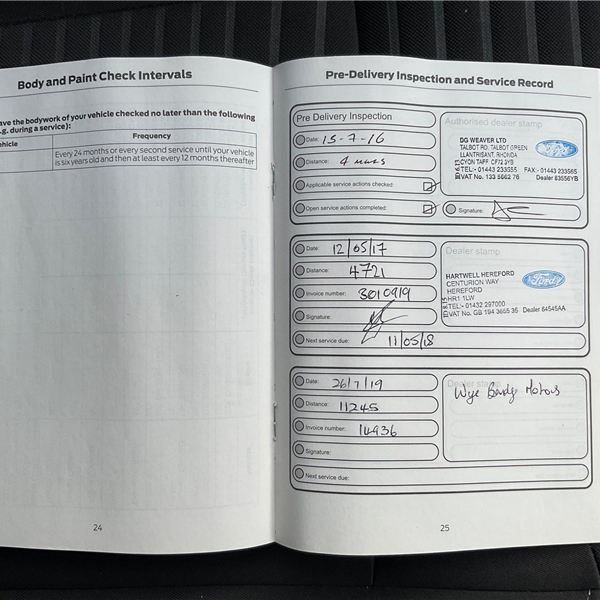 Body and Paint Check Intervals
ave the bodywork of your vehicle checked no later than the following
.g. during a service):
hicle
Frequency
Every 24 months or every second service until your vehicle
is six years old and then at least every 12 months thereafter
24
Pre-Delivery Inspection and Service Record
Pre Delivery Inspection
Date: 15-7-16
Distance: 4 miles
Applicable service actions checked:
Open service actions completed:
Authorised dealer stamp
DG WEAVER LTD
TALBOT RD, TALBOT GREEN
LLANTRISANT, RHONDA
CYON TAFF CF72 9YB
TEL:- 01443 233555 FAX - 01443 233565
VAT No. 133 5662 76 Dealer 63556YB
Ford
Signature:
Date: 12/05/17
Distance: 4721
Invoice number: 3010919
Signature:
Next service due: 11/05/18
Dealer stamp
HARTWELL HEREFORD
CENTURION WAY
HEREFORD
HR1 1LW
TEL:- 01432 297000
VAT No. GB 194 3655 35 Dealer 64545AA
Ford
Date: 26/7/19
Distance: 11245
Invoice number: 14936
Signature:
Next service due:
Dealer stamp
Wye Motors
25